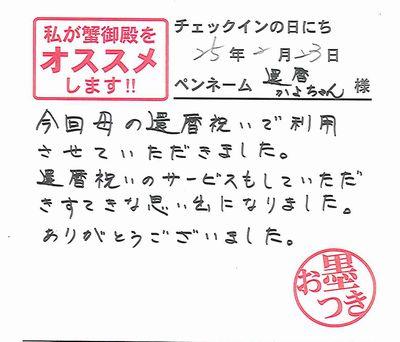 私が蟹御殿を
オススメ
します!!
チェックインの日にち
25年2月23日
ペンネーム 還暦かよちゃん 様
今回母の還暦祝いで利用
させていただきました。
還暦祝いのサービスもしていただ
きすてきな思い出になりました。
ありがとうございました。
お墨
つき